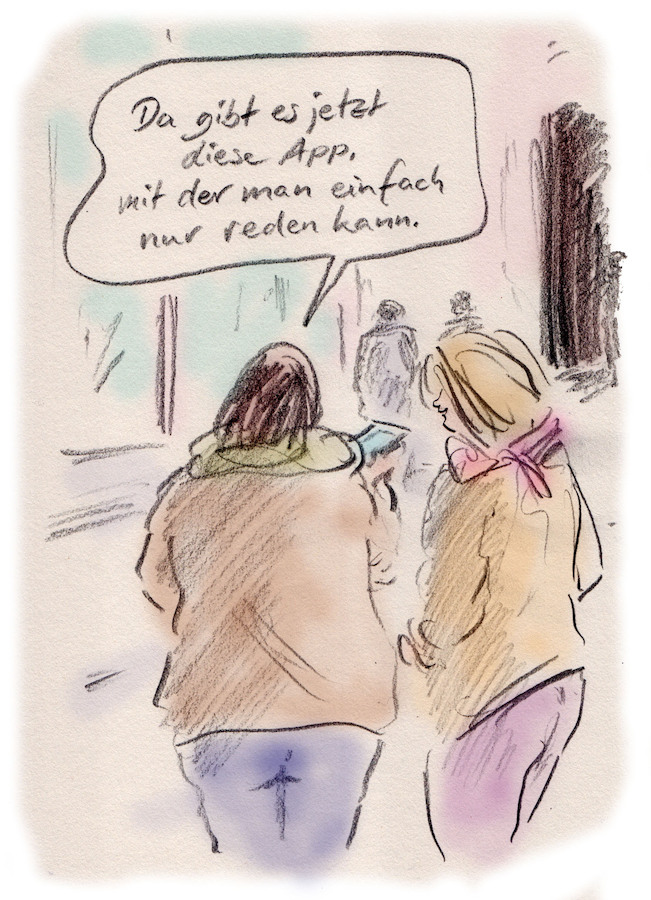 Da gibt es jetzt
diese App,
mit der man einfach
nur reden kann.